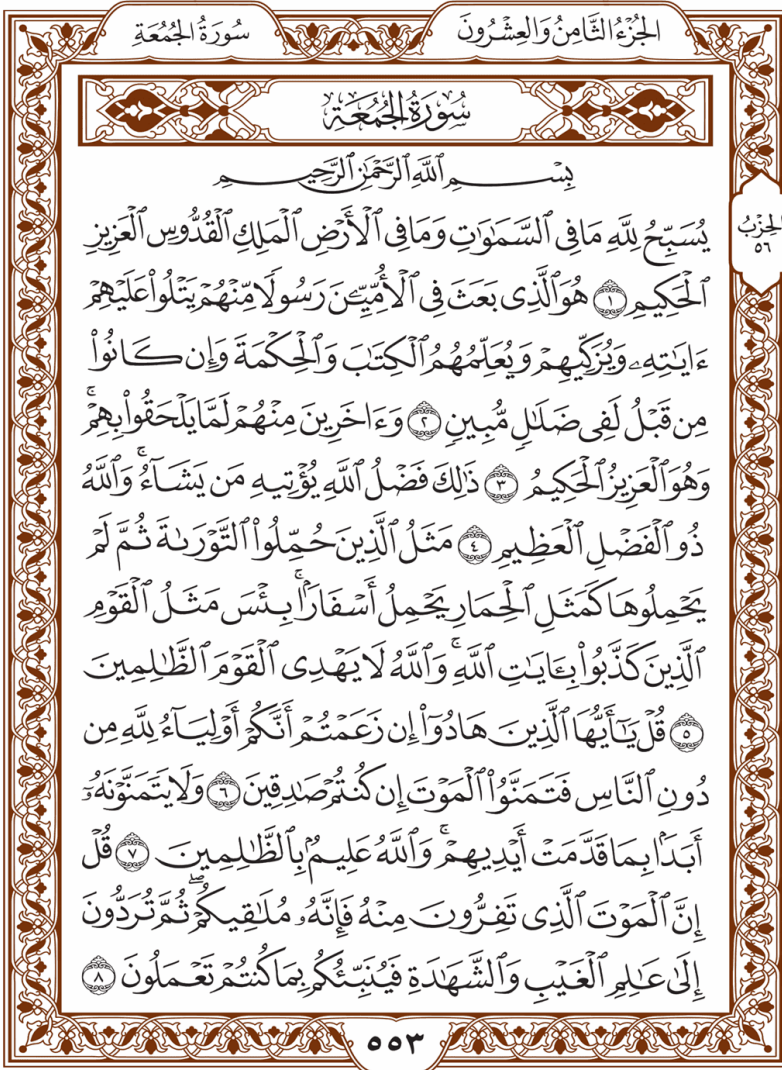 الجُزْءُ الثَّامِنُ وَالعِشْرُونَ
سُورَةُ الجُمُعَةِ
سُورَةُ الجُمُعَةِ
بِسْمِ ٱللَّهِ ٱلرَّحْمَٰنِ ٱلرَّحِيمِ
يُسَبِّحُ لِلَّهِ مَا فِى ٱلسَّمَٰوَٰتِ وَمَا فِى ٱلْأَرْضِ ٱلْمَلِكِ ٱلْقُدُّوسِ ٱلْعَزِيزِ
ٱلْحَكِيمِ ١ هُوَ ٱلَّذِى بَعَثَ فِى ٱلْأُمِّيِّـۧنَ رَسُولًا مِّنْهُمْ يَتْلُوا۟ عَلَيْهِمْ
ءَايَٰتِهِۦ وَيُزَكِّيهِمْ وَيُعَلِّمُهُمُ ٱلْكِتَٰبَ وَٱلْحِكْمَةَ وَإِن كَانُوا۟
مِن قَبْلُ لَفِى ضَلَٰلٍ مُّبِينٍ ٢ وَءَاخَرِينَ مِنْهُمْ لَمَّا يَلْحَقُوا۟ بِهِمْ ۚ
وَهُوَ ٱلْعَزِيزُ ٱلْحَكِيمُ ٣ ذَٰلِكَ فَضْلُ ٱللَّهِ يُؤْتِيهِ مَن يَشَآءُ ۚ وَٱللَّهُ
ذُو ٱلْفَضْلِ ٱلْعَظِيمِ ٤ مَثَلُ ٱلَّذِينَ حُمِّلُوا۟ ٱلتَّوْرَىٰةَ ثُمَّ لَمْ
يَحْمِلُوهَا كَمَثَلِ ٱلْحِمَارِ يَحْمِلُ أَسْفَارًۢا ۚ بِئْسَ مَثَلُ ٱلْقَوْمِ
ٱلَّذِينَ كَذَّبُوا۟ بِـَٔايَٰتِ ٱللَّهِ ۚ وَٱللَّهُ لَا يَهْدِى ٱلْقَوْمَ ٱلظَّٰلِمِينَ
٥ قُلْ يَٰٓأَيُّهَا ٱلَّذِينَ هَادُوٓا۟ إِن زَعَمْتُمْ أَنَّكُمْ أَوْلِيَآءُ لِلَّهِ مِن
دُونِ ٱلنَّاسِ فَتَمَنَّوُا۟ ٱلْمَوْتَ إِن كُنتُمْ صَٰدِقِينَ ٦ وَلَا يَتَمَنَّوْنَهُۥٓ
أَبَدًۢا بِمَا قَدَّمَتْ أَيْدِيهِمْ ۚ وَٱللَّهُ عَلِيمٌۢ بِٱلظَّٰلِمِينَ ٧ قُلْ
إِنَّ ٱلْمَوْتَ ٱلَّذِى تَفِرُّونَ مِنْهُ فَإِنَّهُۥ مُلَٰقِيكُمْ ۖ ثُمَّ تُرَدُّونَ
إِلَىٰ عَٰلِمِ ٱلْغَيْبِ وَٱلشَّهَٰدَةِ فَيُنَبِّئُكُم بِمَا كُنتُمْ تَعْمَلُونَ ٨
الحِزْبُ
٥٦
٥٥٣